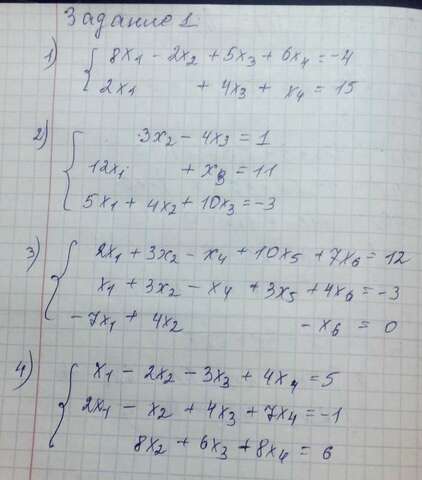 Задание 1.
1) { 8x₁ - 2x₂ + 5x₃ + 6x₄ = -4
2x₁ + 4x₃ + x₄ = 15
2) { 3x₂ - 4x₃ = 1
12x₁ + x₃ = 11
5x₁ + 4x₂ + 10x₃ = -3
3) { 2x₁ + 3x₂ - x₄ + 10x₅ + 7x₆ = 12
x₁ + 3x₂ - x₄ + 3x₅ + 4x₆ = -3
-7x₁ + 4x₂ - x₆ = 0
4) { x₁ - 2x₂ - 3x₃ + 4x₄ = 5
2x₁ - x₂ + 4x₃ + 7x₄ = -1
8x₂ + 6x₃ + 8x₄ = 6